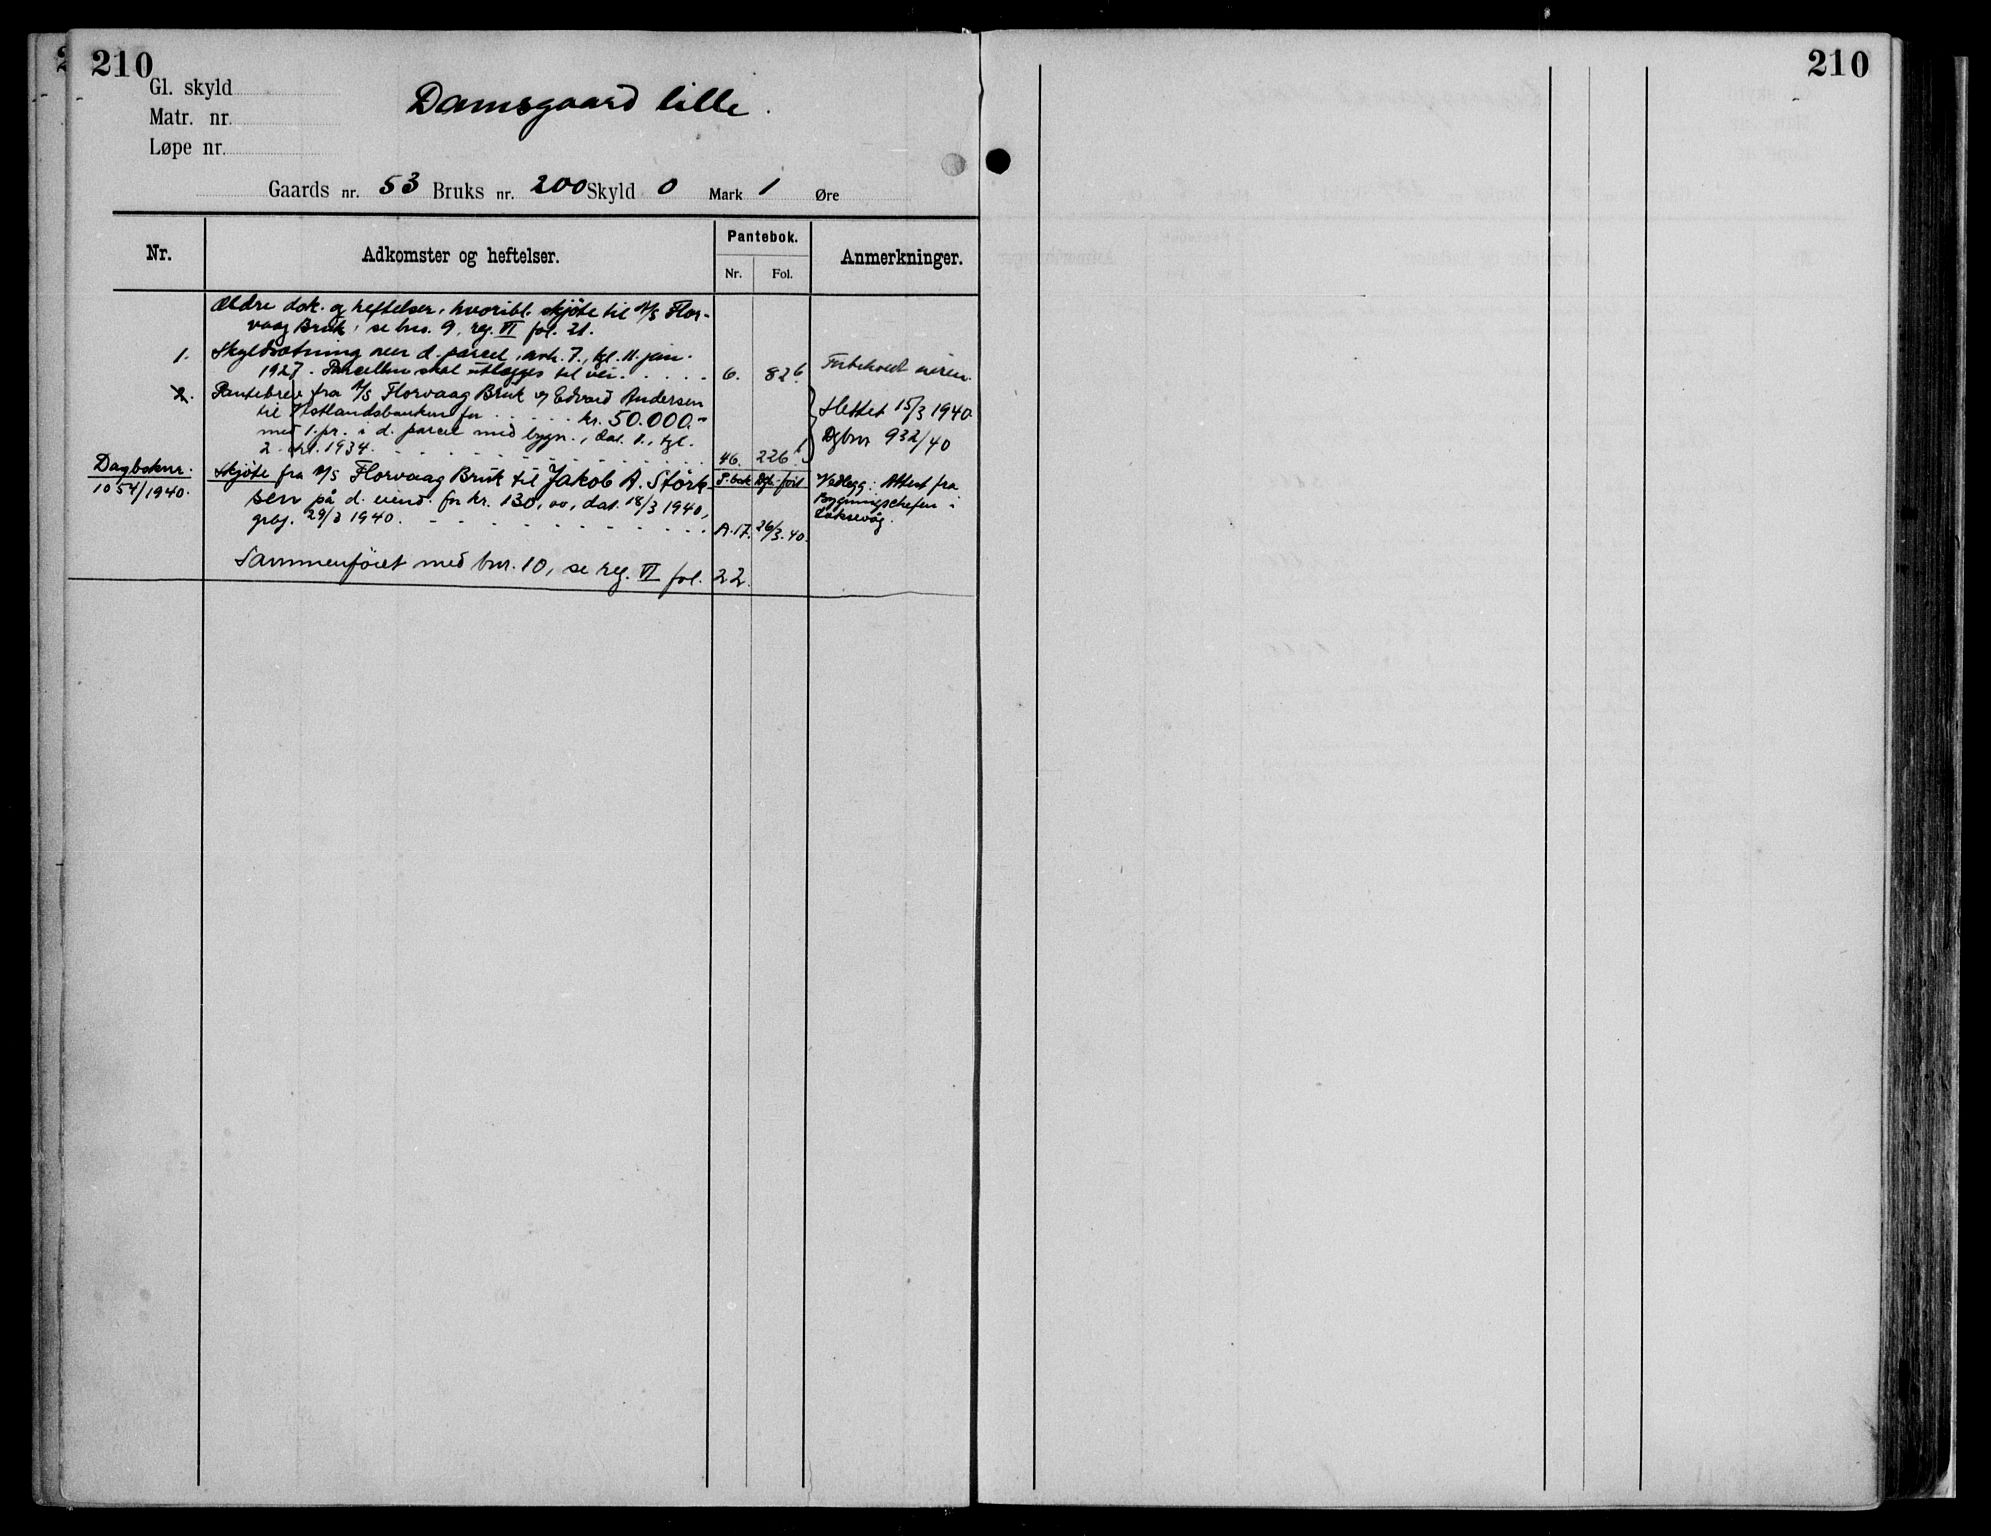 210
Gl. skyld
Matr. nr.
Løpe nr.
Damsgaard lille.
Gaards nr. 53 Bruks nr. 200 Skyld 0 Mark 1 Øre
Nr.
Adkomster og heftelser.
Pantebok.
Nr. Fol.
Anmerkninger.
Ældre dok. og heftelser, hvoribl. skjøte til A/S Flor-
vaag Bruk, se bno. 9, reg. VI fol. 21.
1. Skyldsætning over d. parcel, avh. 7., tgl. 11. jan.
1927. Parcellen skal utlægges til vei. 6. 826. Forbehold veiren.
2. Pantebrev fra A/S Florvaag Bruk og Edvard Andersen
til Vestlandsbanken for kr. 50.000.- Slettet 15/3 1940
med 1. pr. i d. parcel med bygn., dat. 1., tgl. Dgbnr 932/40
2. 1934. 46. 226.
Dagboknr. Skjøte fra A/S Florvaag Bruk til Jakob A. Størk- P.bok Dgb. ført Vedlegg: Attest fra
1054/1940. sen på d. eiend. for kr. 130,00, dat. 18/3 1940, Bygningschefen i
grbj. 29/3 1940. A.17. 26/3.40. Laksevåg.
Sammenføiet med bnr. 10, se reg. VI fol. 22.
210